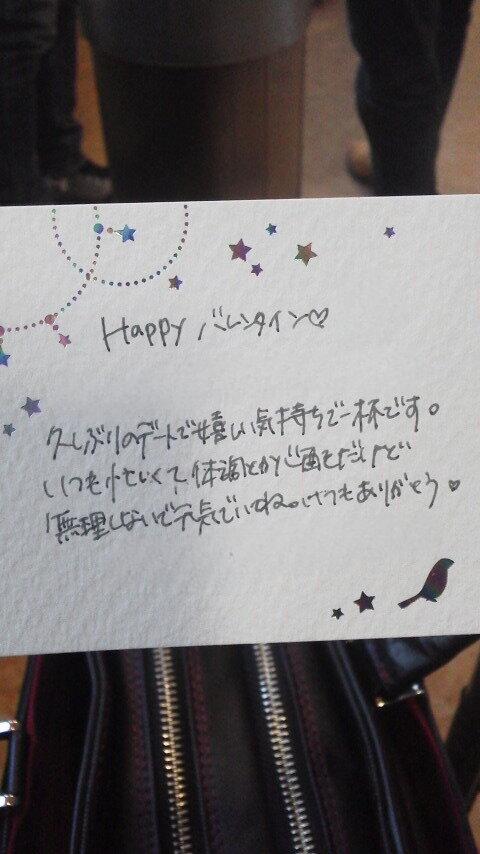 Happy バレンタイン♡
久しぶりのデートで嬉しい気持ちで一杯です。
いつも忙しくて、体調とか心配だけど
無理しないで元気でいてね。いつもありがとう♥